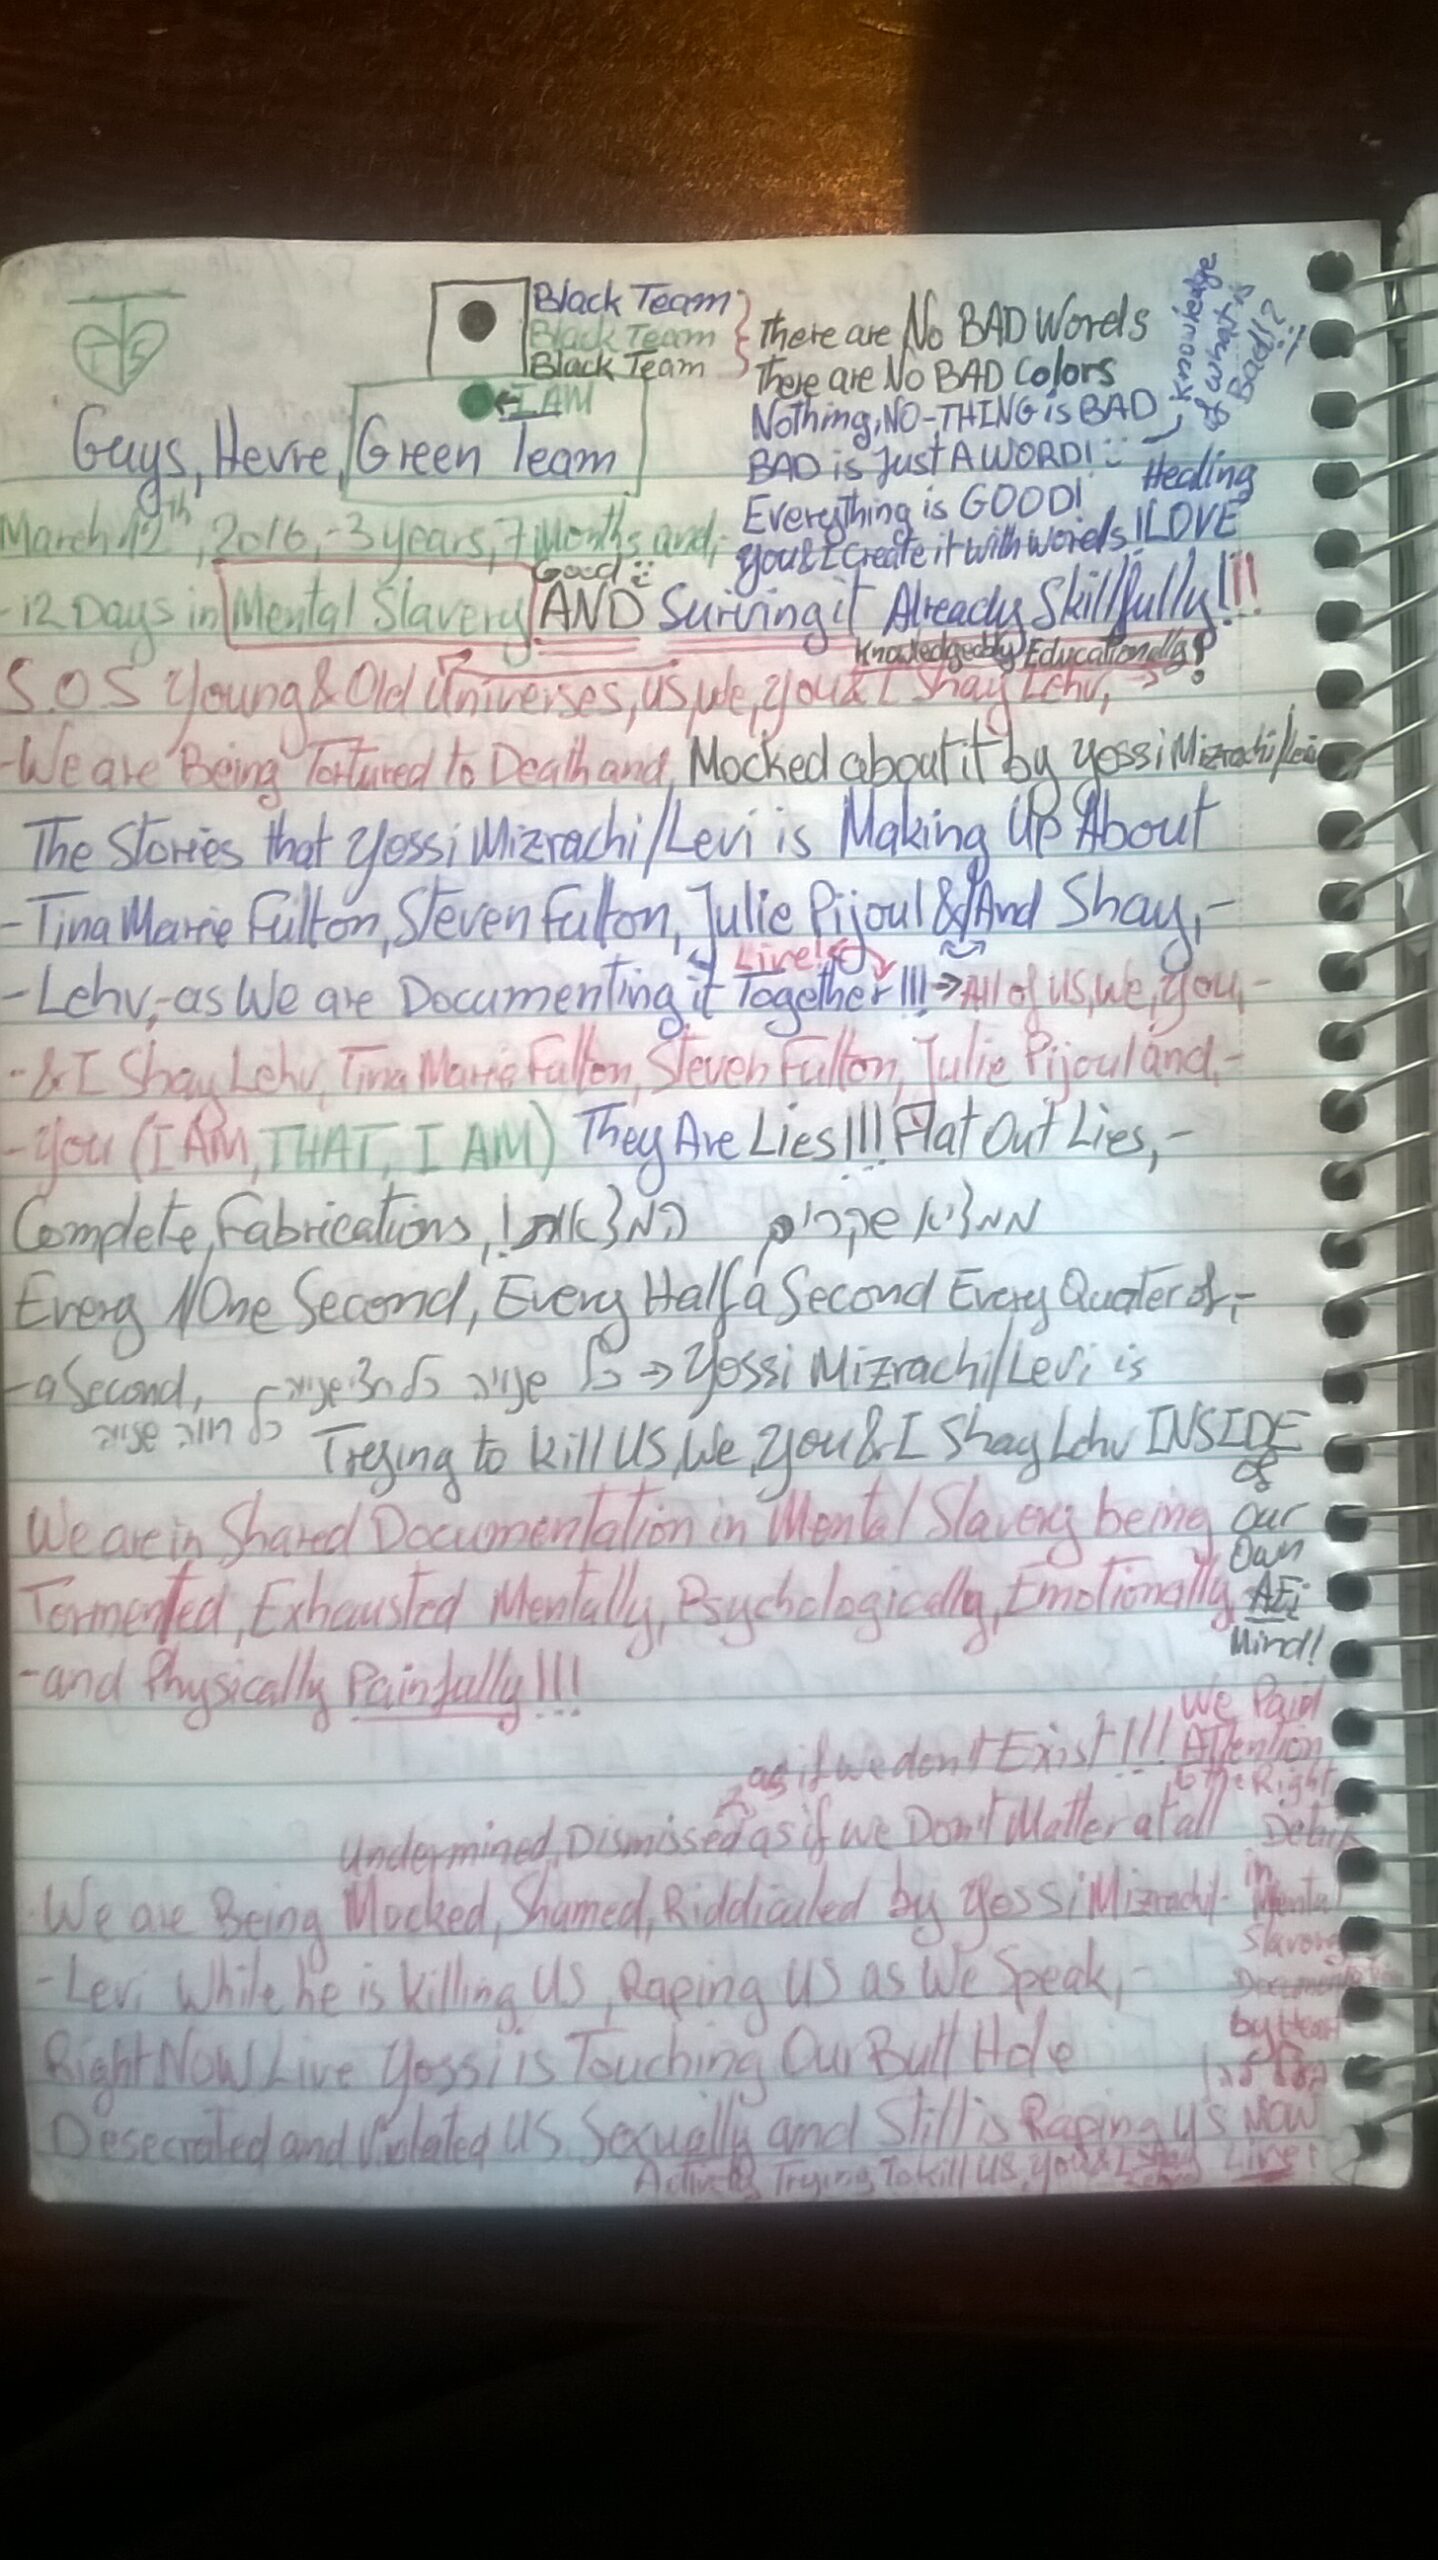 TS
Black Team
Black Team
Black Team
There are No BAD Words
There are No BAD Colors
Nothing, NO-THING is BAD
BAD is Just A WORD!
Knowledge of what is Bad!?
Everything is GOOD!
You & I Create it with words!
Healing
LOVE
← I AM
Guys, Hevre, Green Team
March 12th, 2016,-3 years, 7 Months and,-
Good
-12 Days in Mental Slavery AND Surviving it Already Skillfully!!!
Knowledgeably Educationally
S.O.S Young & Old Universes, us, we, you & I Shay Lehv, →
-We are Being Tortured to Death and, Mocked about it by Yossi Mizrachi/Levi
The Stories that Yossi Mizrachi/Levi is Making Up About
-Tina Marie Fulton, Steven Fulton, Julie Pijoul &/And Shay,-
Live!
-Lehv,-as We are Documenting it Together!!! → All of us, we, you,-
-& I Shay Lehv, Tina Marie Fulton, Steven Fulton, Julie Pijoul and,-
-you (I AM, THAT, I AM) They Are Lies!!! Flat Out Lies,-
Complete, Fabrications, המצאות! ממציא שקרים
Every 1/One Second, Every Half a Second Every Quater of,-
-a Second, כל שנייה כל חצי שנייה → Yossi Mizrachi/Levi is
כל רבע שנייה
Treying to kill US, We, You & I Shay Lehv INSIDE
of
our
Own
Mind!
We are in Shared Documentation in Mental Slavery being
Tormented, Exhausted Mentally, Psychologically, Emotionally
-and Physically Painfully!!!
as if we don't Exist!!!
We Paid
Attention
to the Right
Details
in
Mental
Slavery
Documentation
by Heart
Undermined, Dismissed as if we Don't Matter at all
We are Being Mocked, Shamed, Riddiculed by Yossi Mizrachi-
-Levi While he is killing US, Raping US as We Speak,-
Right NOW Live Yossi is Touching Our Butt Hole
Desecrated and Violated US Sexually and Still is Raping US NOW
Live!
Actively Trying To kill US, You & I Shay